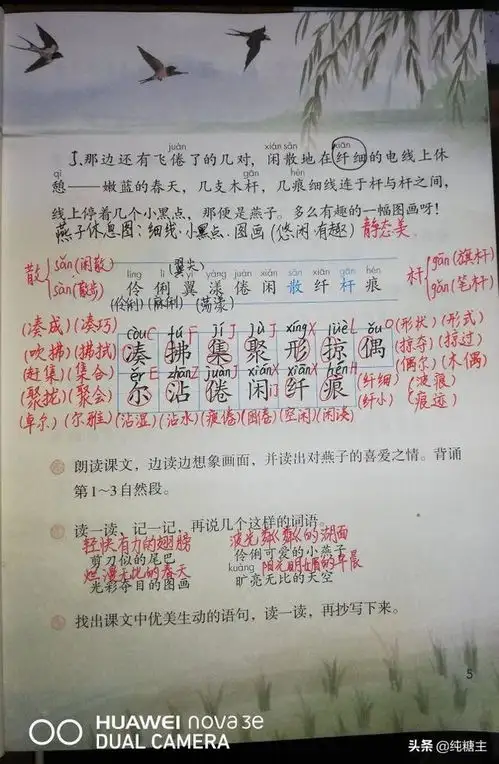 juàn xián sǎn xiān
5.那边还有飞倦了的几对，闲散地在纤细的电线上休
qì gān hén
憩——嫩蓝的春天，几支木杆，几痕细线连于杆与杆之间，
线上停着几个小黑点，那便是燕子。多么有趣的一幅图画呀！
燕子休息图：细线·小黑点·图画(悠闲·有趣) 静态美
散 sǎn(闲散) sàn(散步)
(翼尖)
líng lì yì yàng juàn xián sǎn xiān gān hén
伶 俐 翼 漾 倦 闲 散 纤 杆 痕
(伶俐) (荡漾)
杆 gān(旗杆) gǎn(笔杆)
còu C fú F jí J jù J xíng X lüè L ǒu O
(凑成)(凑巧) 凑 拂 集 聚 形 掠 偶 (形状)(形式)
(吹拂)(拂拭) (掠夺)(掠过)
(赶集)(集合) (偶尔)(木偶)
ěr E zhān Z juàn J xián X xiān X hén H
(聚拢)(聚会) 尔 沾 倦 闲 纤 痕 (纤细)(痕迹)
(卓尔)(尔雅)(沾湿)(沾水)(疲倦)(困倦)(空闲) (纤小)
朗读课文，边读边想象画面，并读出对燕子的喜爱之情。背诵
第1~3自然段。
读一读，记一记，再说几个这样的词语。
轻快有力的翅膀 波光粼粼的湖面
剪刀似的尾巴 伶俐可爱的小燕子
烂漫无比的春天 kuàng 阳光明媚的早晨
光彩夺目的图画 旷亮无比的天空
找出课文中优美生动的语句，读一读，再抄写下来。
5
HUAWEI nova 3e
DUAL CAMERA
头条 @纯糖主